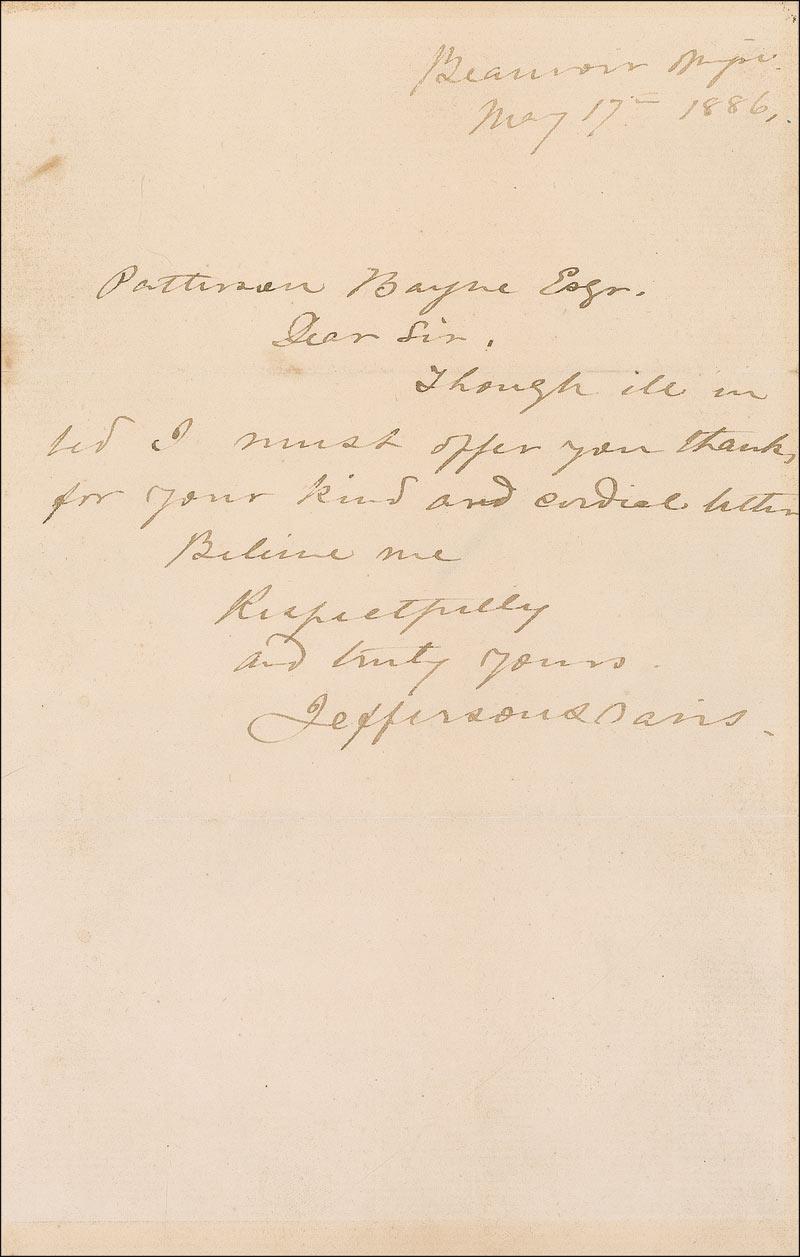 Beauvoir Missi.
May 17th 1886,
Patterson Bayne Esqr.
Dear Sir,
Though ill in
bed I must offer you thanks
for your kind and cordial letter
Believe me
Respectfully
and truly yours
Jefferson Davis